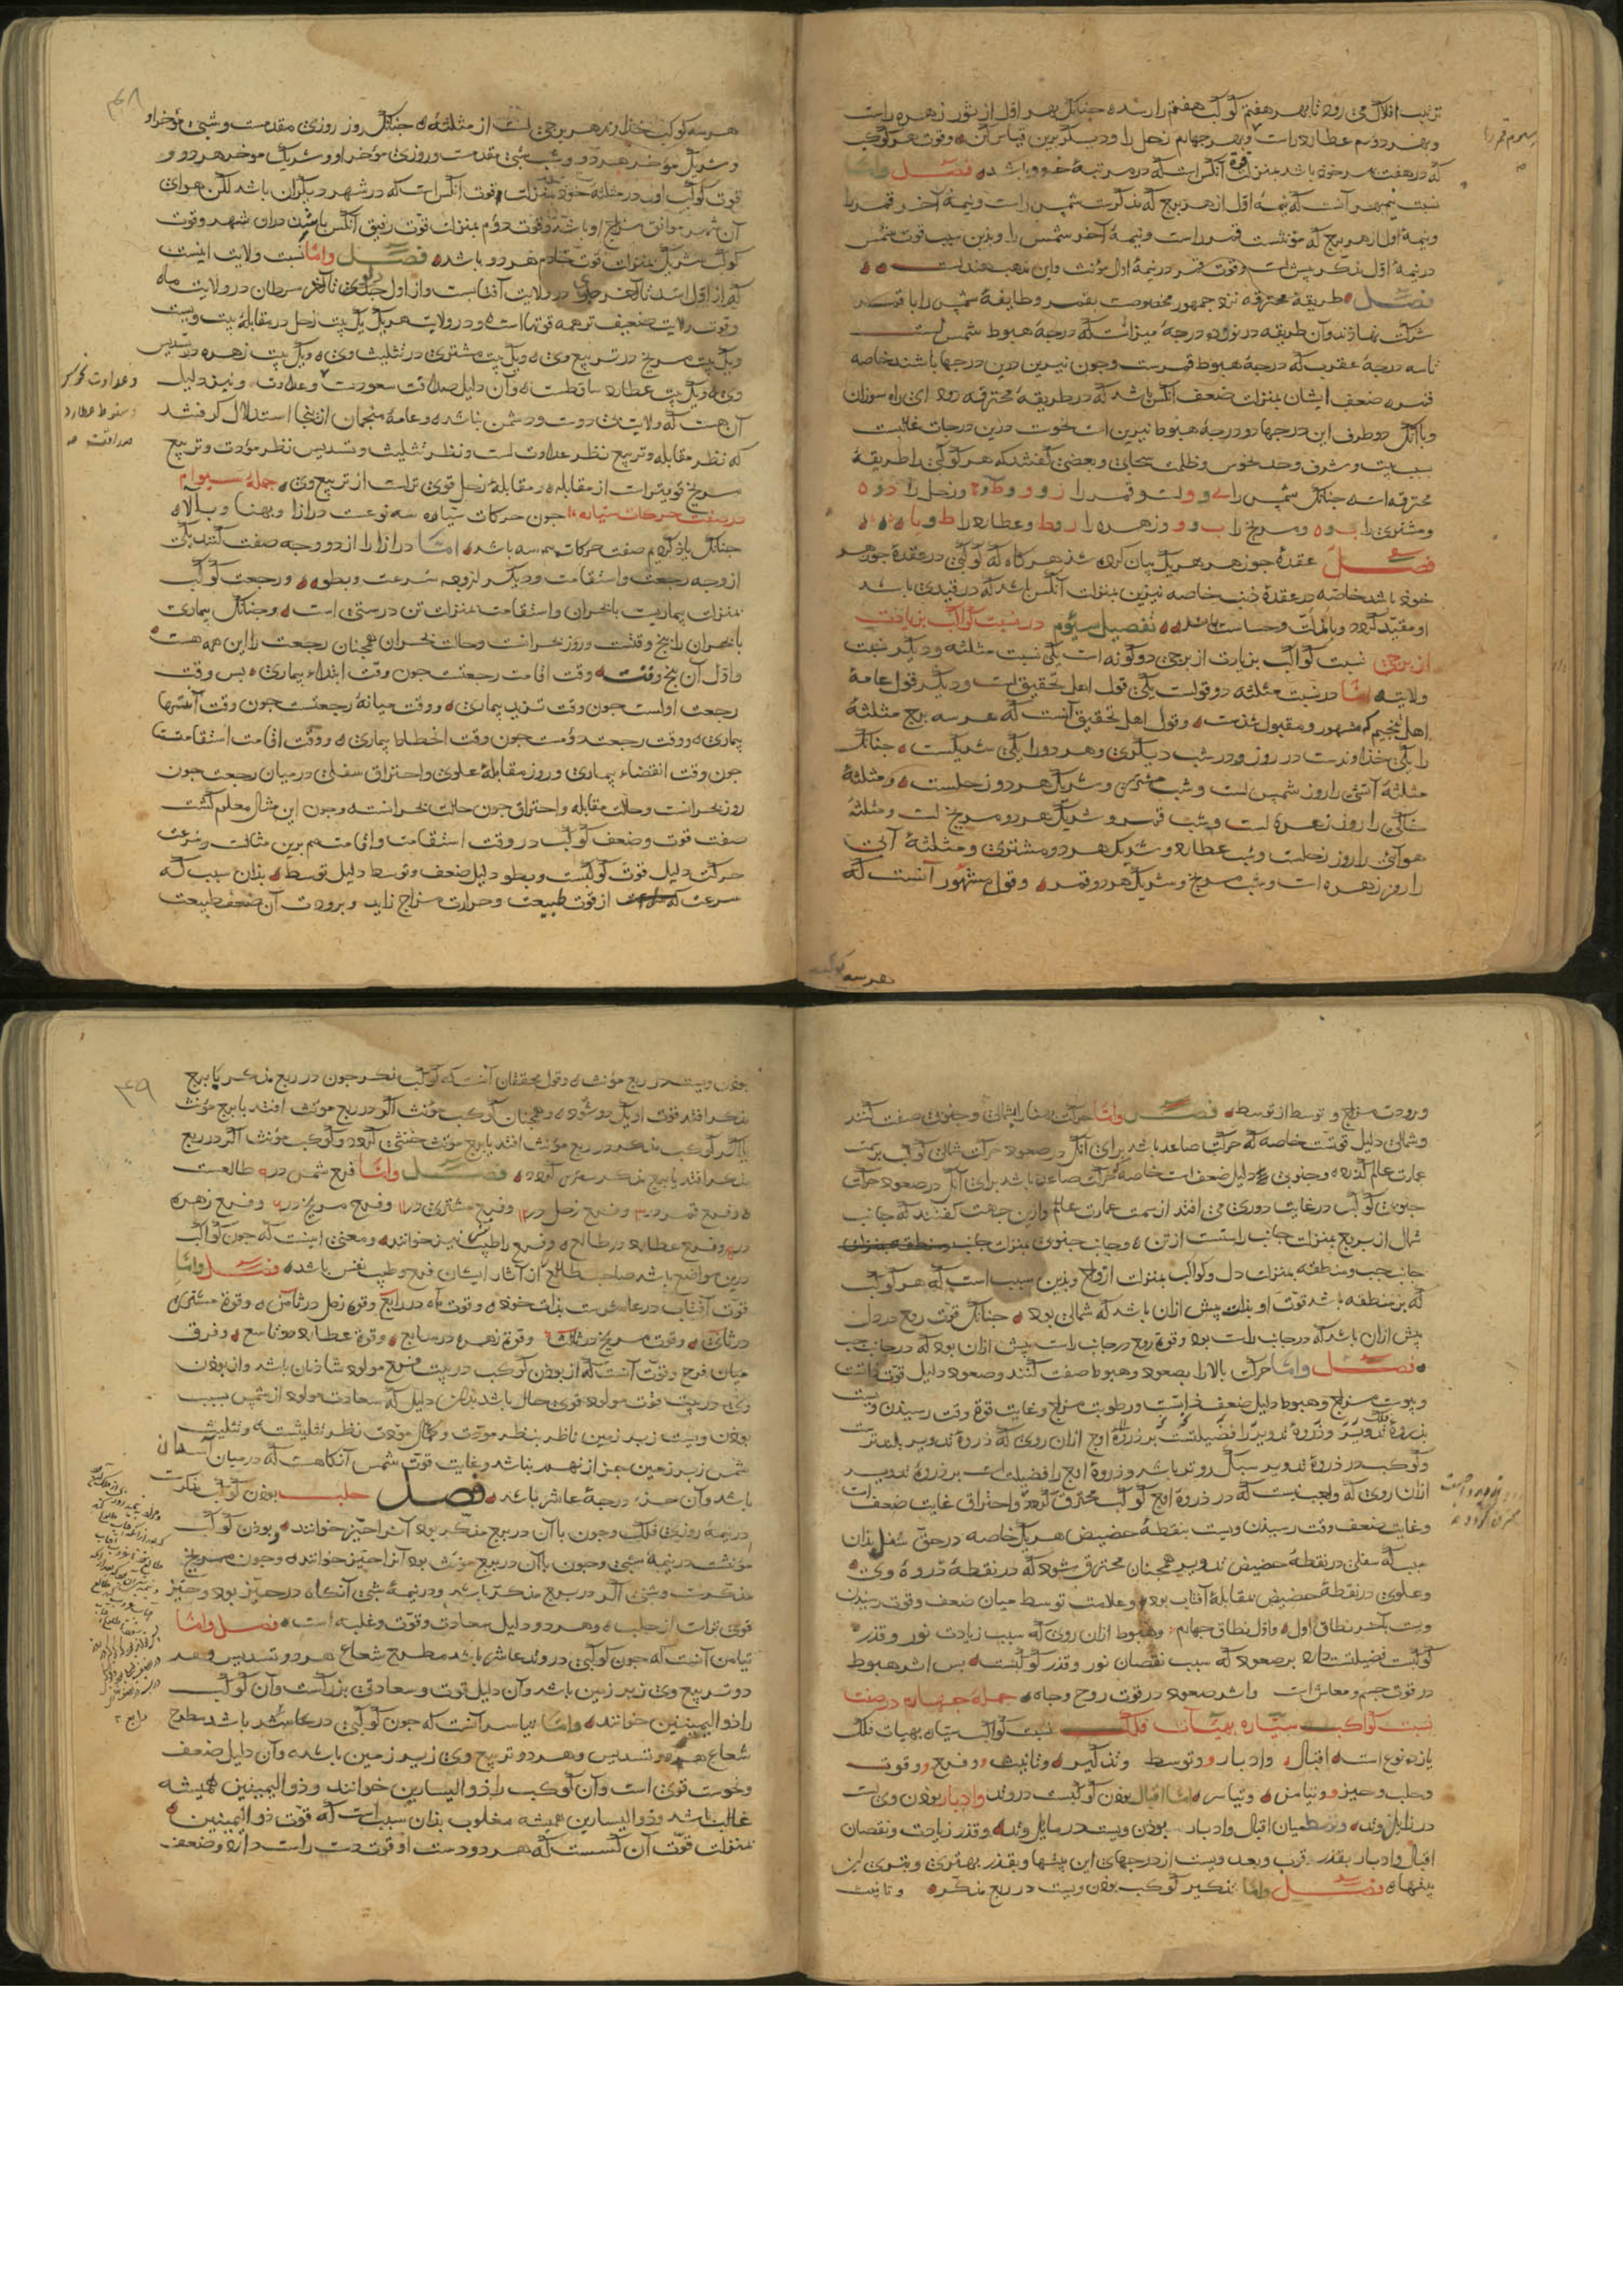 ترتیب افلاک می رود تا بهر هفتم کوکب هفتم را رسد جنانک بهر اول از ثور زهره راست
وبهر دوم عطارد راست وبهر جهارم زحل را ودیکر برین قیاس کن وقوت هر کوکب
که در هفت بهر خود باشد بمنزلت قوة آنکس است که در مرتبهٔ خود باشد فصل واما
نسبت نیم بهر آنست که نیمهٔ اول از هر برج که مذکرست شمس راست ونیمهٔ آخر قمر را
ونیمهٔ اول از هر برج که مؤنثست قمر راست ونیمهٔ آخر شمس را وبدین سبب قوت شمس
در نیمهٔ اول مذکر بیش است وقوت قمر در نیمهٔ اول مؤنث واین مذهب هند است
فصل طریقهٔ محترقه نزد جمهور مخصوصست بقمر وطایفهٔ شمس را با قمر
شرکت نهادند وآن طریقه در نوزده درجهٔ میزانست که درجهٔ هبوط شمس است
تا سه درجهٔ عقرب که درجهٔ هبوط قمرست وجون نیرین درین درجها باشند خاصه
قمر ضعف ایشان بمنزلت ضعف آنکس باشد که در طریقهٔ محترقه رود ای راه سوزان
وبا آنک دو طرف این درجها دو درجهٔ هبوط نیرین است نحوست درین درجات غالبست
بسبب وشرف وحد نحوس وظلمت سحابی وبعضی کفتند که هر کوکبی را طریقهٔ
محترقه است جنانک شمس را وقمر را وزحل را
ومشتری را ومریخ را وزهره را وعطارد را
فصل عقدهٔ جوزهر هر یک بیان کرده شد هر کاه که کوکبی در عقدهٔ جوزهر
خود باشد خاصه در عقدهٔ ذنب خاصه نیرین بمنزلت آنکس باشد که در قیدی باشد
او مقید کردد تفصیل سیوم در نسبت کواکب بزیادت
از برجی نسبت کواکب بزیادت از برجی دو کونه است یکی نسبت مثلثه ودیکر نسبت
ولایت اما در نسبت مثلثه دو قولست یکی قول اهل تحقیق است ودیکر قول عامهٔ
اهل تنجیم که مشهور ومقبول شدست وقول اهل تحقیق آنست که هر سه برج مثلثهٔ
را یکی خداوندست در روز ودر شب دیکری وهر دو را یکی شریکست جنانک
مثلثهٔ آتشی را روز شمس است وشب مشتری وشریک هر دو زحلست ومثلثهٔ
خاکی را روز زهره است وشب قمر وشریک هر دو مریخ است ومثلثهٔ
هوائی را روز زحلست وشب عطارد وشریک هر دو مشتری ومثلثهٔ آبی
را روز زهره است وشب مریخ وشریک هر دو قمر وقول مشهور آنست که
هر سه کوکب
۳۴۸
هر سه کوکب خداوند هر برجی است از مثلثه جنانک روز روزی مقدمست وشبی مؤخر او
وشریک مؤخر هر دو وشب شبی مقدمست وروزی مؤخر او وشریک موخر هر دو و
قوت کوکب اول در مثلثهٔ خود بمنزلت قوت آنکس است که در شهر دیکران باشد لکن هوای
آن شهر موافق مزاج او باشد وقوت دوم بمنزلت قوت رفیق آنکس باشد در آن شهر وقوت
کوکب شریک بمنزلت قوت خادم هر دو باشد فصل واما نسبت ولایت اینست
که از اول اسد تا آخر جدی در ولایت آفتابست واز اول دلو تا آخر سرطان در ولایت ماه
وقوت ولایت ضعیف تر همه قوتها است ودر ولایت هر یک یک بیت زحل در مقابلهٔ بیت ویست
ویک بیت مریخ در تربیع وی ویک بیت مشتری در تثلیث وی ویک بیت زهره در تسدیس
وی ویک بیت عطارد ساقطست وآن دلیل صداقت سعودست وعداوت ونیز دلیل
آن هست که ولایت دوست ودشمن بباشد وعامهٔ منجمان از اینجا استدلال کرفتند
که نظر مقابله وتربیع نظر عداوت است ونظر تثلیث وتسدیس نظر مودت وتربیع
مریخ قویترست از مقابله ومقابلهٔ زحل قوی ترست از تربیع وی جملهٔ سیوم
در صفت حرکات سیاره جون حرکات سیاره سه نوعست درازا وپهنا وبالا
جنانک یاد کردیم صفت حرکات هم سه باشد اما درازا را از دو وجه صفت کنند یکی
از وجه رجعت واستقامت ودیکر از وجه سرعت وبطو ورجعت کوکب
بمنزلت بیماریست با بحران واستقامت بمنزلت تن درستی است وجنانک بیماری
با بحران را پنج وقتست وروز بحرانست وحالت بحران همجنان رجعت را این همه هست
واول آن پنج وقتست وقت اقامت رجعتست جون وقت ابتداء بیماری پس وقت
رجعت اولست جون وقت تزید بیماری ووقت میانهٔ رجعتست جون وقت انتهای
بیماری ووقت رجعت دومست جون وقت انحطاط بیماری ووقت اقامت استقامتست
جون وقت انقضاء بیماری وروز مقابلهٔ علوی واحتراق سفلی در میان رجعت جون
روز بحرانست وحالت مقابله واحتراق جون حالت بحرانست وجون این مثال معلوم کشت
صفت قوت وضعف کوکب در وقت استقامت واقامت هم برین مثالست وسرعت
حرکت دلیل قوت کوکبست وبطو دلیل ضعف وتوسط دلیل توسط بدان سبب که
سرعت از قوت طبیعت وحرارت مزاج زاید وبرودت آن ضعف طبیعت
وبرودت مزاج وتوسط از توسط فصل واما حرکت پهنا را بشمالی وجنوبی صفت کنند
وشمالی دلیل قوتست خاصه که حرکت صاعد باشد برای آنک در صعود حرکت شمالی کوکب بر سمت
عمارت عالم کذرد وجنوبی دلیل ضعف است خاصه که حرکت صاعد باشد برای آنک در صعود حرکت
جنوبی کوکب در غایت دوری می افتد از سمت عمارت عالم وازین جهت کفتند که جانب
شمال از بروج بمنزلت جانب راستست از تن وجانب جنوبی بمنزلت
جانب جب ومنطقه بمنزلت دل وکواکب بمنزلت ارواح وبدین سبب است که هر کوکب
که بر منطقه باشد قوت او بیش ازان باشد که شمالی بود جنانک قوت روح در دل
بیش ازان باشد که در جانب راست بود وقوة روح در جانب راست بیش ازان بود که در جانب جب
فصل واما حرکت بالا را بصعود وهبوط صفت کنند وصعود دلیل قوت ذاتست
ویبوست مزاج وهبوط دلیل ضعف ذاتست ورطوبت مزاج وغایت قوة وقت رسیدن ویست
بذروهٔ تدویر وذروهٔ تدویر را فضیلتست بر ذروهٔ اوج ازان روی که ذروهٔ تدویر بلندتر است
وکوکب در ذروهٔ تدویر سبک رو تر باشد وذروهٔ اوج را فضیلت است بر ذروهٔ تدویر
ازان روی که واجب نیست که در ذروهٔ اوج کوکب محترق کردد واحتراق غایت ضعف است
وغایت ضعف وقت رسیدن ویست بنقطهٔ حضیض هر یک خاصه در حق سفلی بدان
سبب که سفلی در نقطهٔ حضیض تدویر همجنان محترق شود که در نقطهٔ ذروهٔ وی
وعلوی در نقطهٔ حضیض بمقابلهٔ آفتاب بود وعلامت توسط میان ضعف وقوت رسیدن
ویست بآخر نطاق اول واول نطاق جهارم وهبوط ازان روی که سبب زیادت نور وقدر
کوکبست فضیلت دارد بر صعود که سبب نقصان نور وقدر کوکبست پس اثر هبوط
در قوت جسم ومعاش است واثر صعود در قوت روح وجاه جملهٔ جهارم در صفت
نسبت کواکب سیاره بهیآت فلک نسبت کواکب سیاره بهیات فلک
یازده نوع است اقبال وادبار وتوسط وتذکیر وتانیث وفرح وقوت
وحلب وحیز وتیامن وتیاسر اما اقبال بودن کوکبست در وتد وادبار بودن وی است
در زایل وتد وتوسط میان اقبال وادبار بودن ویست در مایل وتد وقدر زیادت ونقصان
اقبال وادبار بقدر قرب وبعد ویست از درجهای این بیتها وبقدر بهتری وبتری این
بیتها فصل واما تذکیر کوکب بودن ویست در ربع مذکر وتانیث
۳۴۹
بودن ویست در ربع مؤنث وقول محققان آنست که کوکب مذکر جون در ربع مذکر یا برج
مذکر افتد قوت او یک دو شود وهمجنان کوکب مؤنث اکر در ربع مونث افتد یا برج مؤنث
یا اکر کوکب مذکر در ربع مؤنث افتد یا برج مؤنث خنثی کردد وکوکب مؤنث اکر در ربع
مذکر افتد یا برج مذکر کردد فصل واما فرح شمس در ۹ طالعست
وفرح قمر در ۳ وفرح زحل در ۱۲ وفرح مشتری در ۱۱ وفرح مریخ در ۶ وفرح زهره
در ۵ وفرح عطارد در طالع وفرح را طیب نیز خوانند ومعنی اینست که جون کواکب
درین مواضع باشد صاحب طالع از آثار ایشان فرح وطیب نفس باشد فصل واما
قوت آفتاب در عاشرست بذات خود وقوت ماه در رابع وقوة زحل در ثامن وقوة مشتری
در ثانی وقوت مریخ در ثالث وقوة زهره در سابع وقوة عطارد در تاسع وفرق
میان فرح وقوت آنست که از بودن کوکب در بیت فرح مولود شادمان باشد واز بودن
وی در بیت قوت مولود قوی حال باشد بدان دلیل که سعادت مولود از شمس بسبب
بودن ویست زیر زمین ناظر بنظر مودت وکمال مودت نظر تثلیثست وتثلیث
شمس زیر زمین جز از نهم نباشد وغایت قوت شمس آنکاهست که در میان آسمان
باشد وآن جزء درجهٔ عاشر باشد فصل حلب بودن کوکب مذکرست
در نیمهٔ روزی فلک وجون با آن در برج مذکر بود آنرا حیز خوانند وبودن کوکب
مؤنثست در نیمهٔ شبی وجون با آن در برج مونث بود آنرا حیز خوانند وجون مریخ
مذکرست وشبی اکر در برج مذکر باشد ودر نیمهٔ شبی آنکاه در حیز بود وحیز
قوی ترست از حلب وهر دو دلیل سعادت وقوت وغلبه است فصل واما
تیامن آنست که جون کوکبی در وتد عاشر باشد مطرح شعاع هر دو تسدیس وهر
دو تربیع وی زیر زمین باشد وآن دلیل قوت وسعادتی بزرکست وآن کوکب
را ذو الیمینین خوانند واما تیاسر آنست که جون کوکبی در عاشر باشد مطرح
شعاع هر دو تسدیس وهر دو تربیع وی زیر زمین باشد وآن دلیل ضعف
ونحوست قوی است وآن کوکب را ذو الیسارین خوانند وذو الیمینین همیشه
غالب باشد وذو الیسارین همیشه مغلوب بدان سبب است که قوت ذو الیمینین
بمنزلت قوت آن کسست که هر دو دست او قوت دست راست دارد وضعف